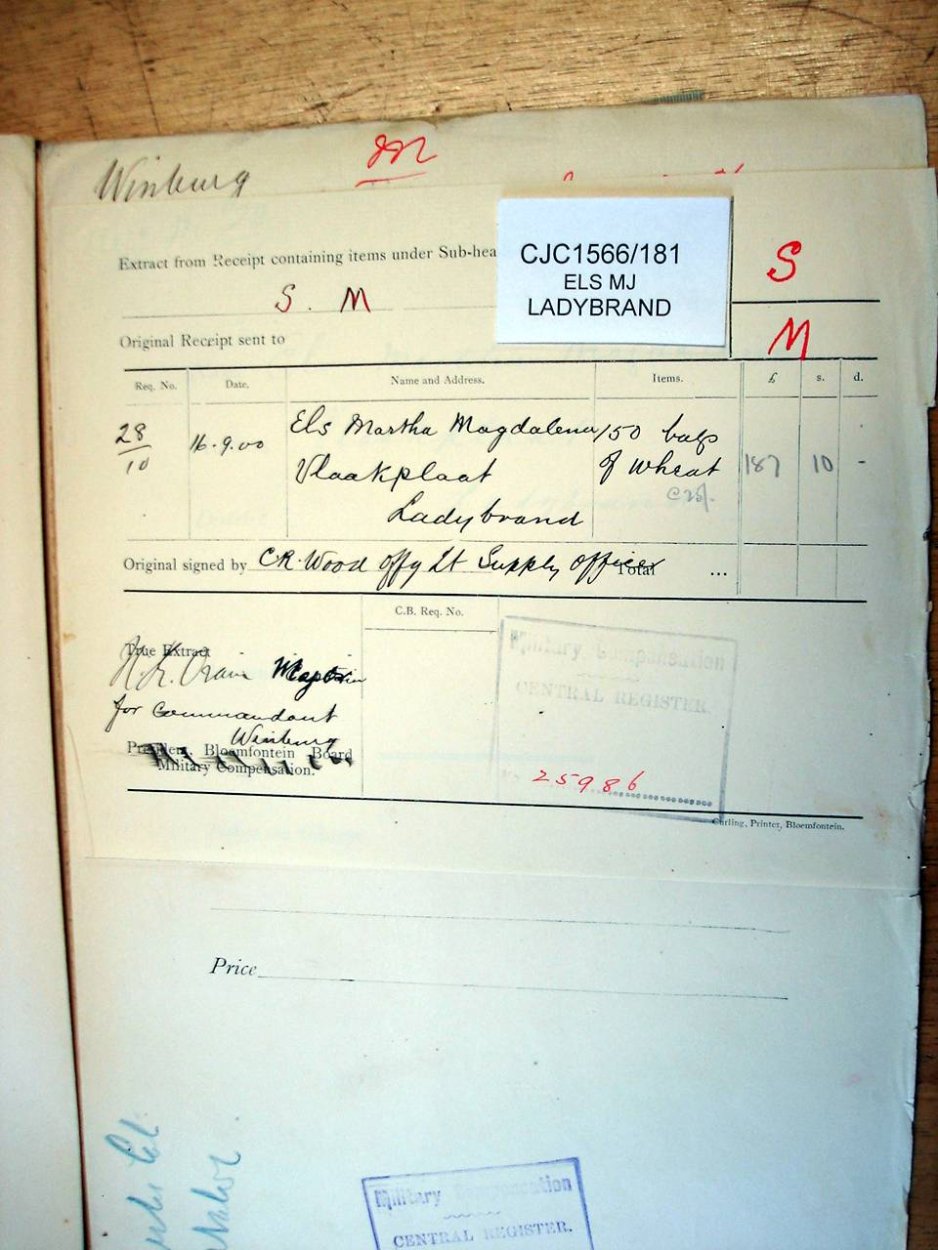 Winburg
M
Extract from Receipt containing items under Sub-hea
CJC1566/181
ELS MJ
LADYBRAND
S
S. M
Original Receipt sent to
M
Req. No. Date. Name and Address. Items. £ s. d.
28/10 16.9.00 Els Martha Magdalena 150 bags
Vlaakplaat of wheat 187 10 -
Ladybrand
Original signed by C.R. Wood Lt Supply officer Total ...
C.B. Req. No.
True Extract
Captain
for Commandant
Winburg
President, Bloemfontein Board
Military Compensation.
Military Compensation
CENTRAL REGISTER.
25986
Curling, Printer, Bloemfontein.
Price
Military Compensation
CENTRAL REGISTER.